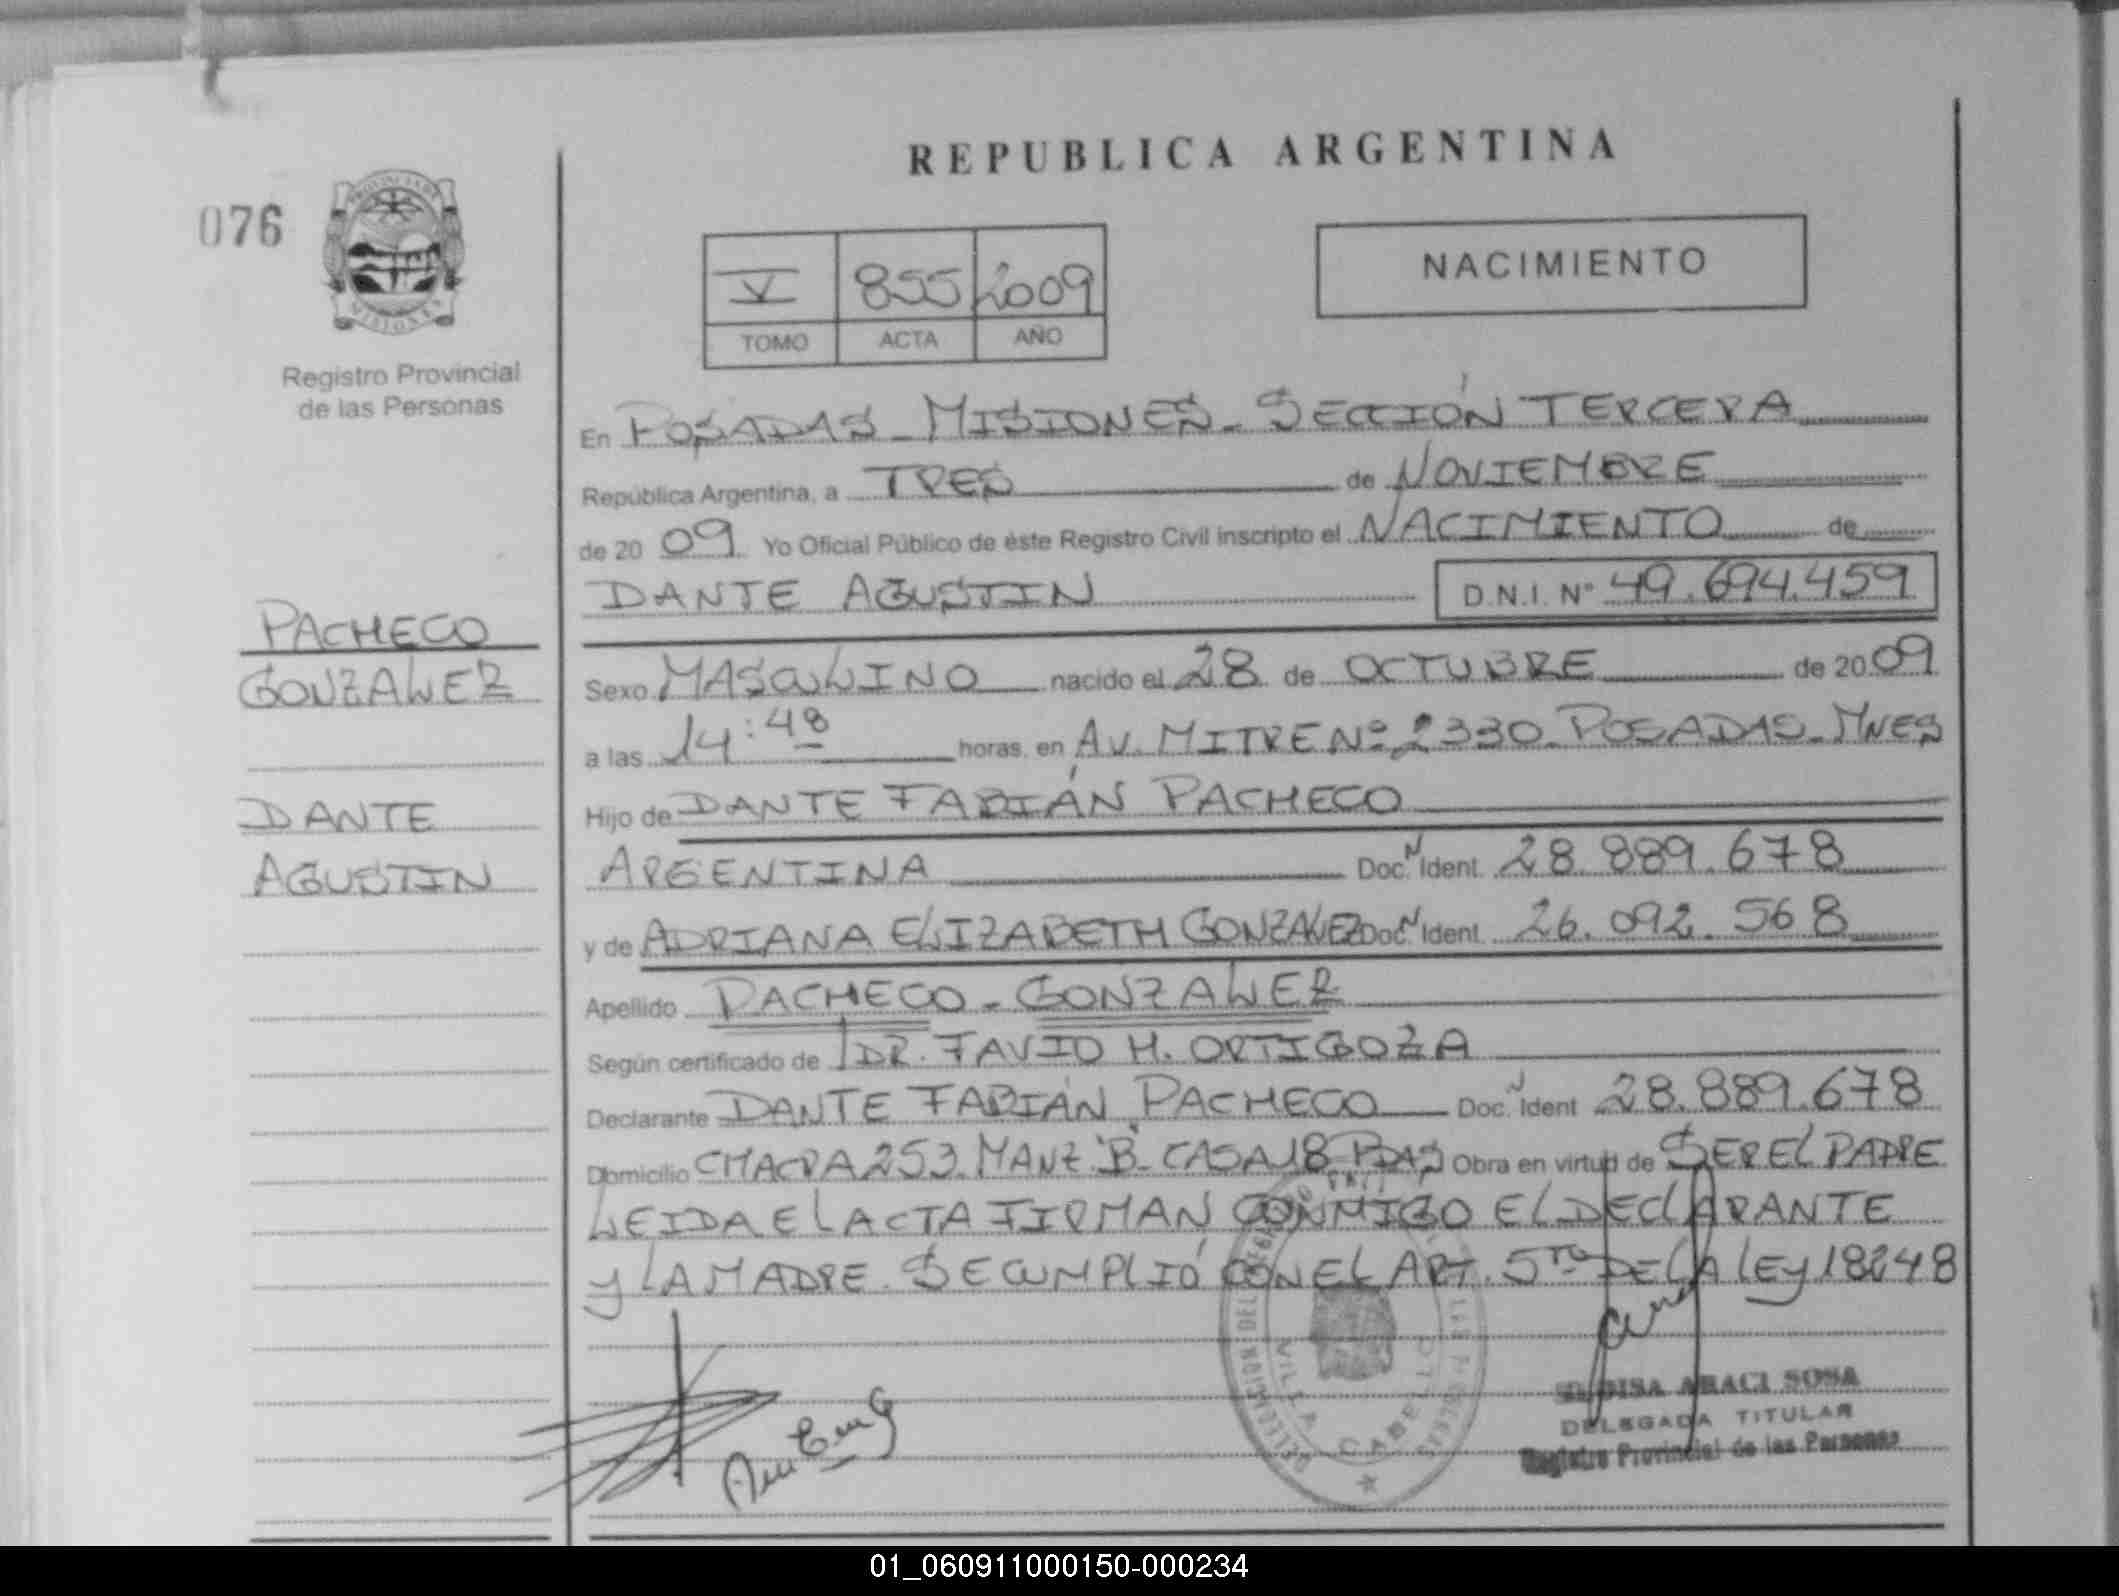 REPUBLICA ARGENTINA
076
PROVINCIA DE
MISIONES
Registro Provincial
de las Personas
V 855 2009
TOMO ACTA AÑO
NACIMIENTO
En POSADAS - MISIONES - SECCIÓN TERCERA
República Argentina, a TRES de NOVIEMBRE
de 2009 Yo Oficial Público de éste Registro Civil inscripto el NACIMIENTO de
DANTE AGUSTIN D.N.I. Nº 49.694.459
PACHECO
GONZALEZ
DANTE
AGUSTIN
Sexo MASCULINO nacido el 28 de OCTUBRE de 2009
a las 14:48 horas, en AV. MITRE Nº 2330 - POSADAS - MNES
Hijo de DANTE FABIÁN PACHECO
ARGENTINA Doc. N Ident. 28.889.678
y de ADRIANA ELIZABETH GONZALEZ Doc. N Ident. 26.092.568
Apellido PACHECO - GONZALEZ
Según certificado de DR. FAVIO H. ORTIGOZA
Declarante DANTE FABIÁN PACHECO Doc. N Ident 28.889.678
Domicilio CHACRA 253 MANZ "B" CASA 18 PDAS Obra en virtud de SER EL PADRE
LEIDA EL ACTA FIRMAN CONMIGO EL DECLARANTE
Y LA MADRE. SE CUMPLIÓ CON EL ART. 5to DE LA LEY 18248
VILLA CABELLO
ARACI SOSA
DELEGADA TITULAR
Registro Provincial de las Personas
01_060911000150-000234